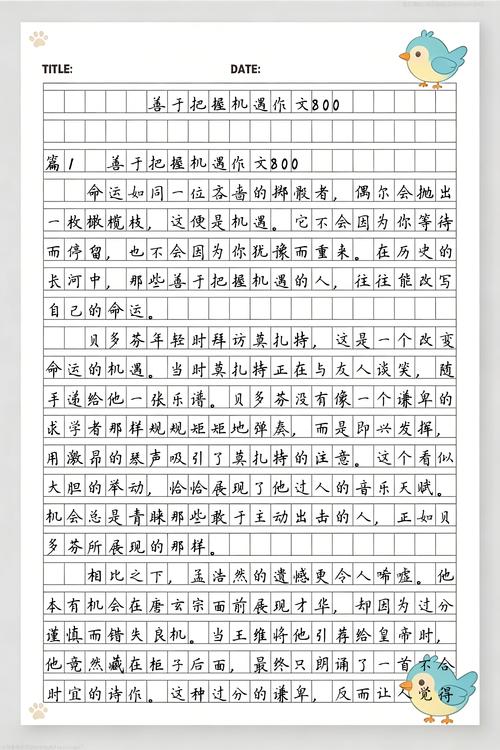 TITLE: DATE:
善于把握机遇作文800
篇1 善于把握机遇作文800
命运如同一位吝啬的掷骰者，偶尔会抛出
一枚橄榄枝，这便是机遇。它不会因为你等待
而停留，也不会因为你犹豫而重来。在历史的
长河中，那些善于把握机遇的人，往往能改写
自己的命运。
贝多芬年轻时拜访莫扎特，这是一个改变
命运的机遇。当时莫扎特正在与友人谈笑，随
手递给他一张乐谱。贝多芬没有像一个谦卑的
求学者那样规规矩矩地弹奏，而是即兴发挥，
用激昂的琴声吸引了莫扎特的注意。这个看似
大胆的举动，恰恰展现了他过人的音乐天赋。
机会总是青睐那些敢于主动出击的人，正如贝
多芬所展现的那样。
相比之下，孟浩然的遗憾更令人唏嘘。他
本有机会在唐玄宗面前展现才华，却因为过分
谨慎而错失良机。当王维将他引荐给皇帝时，
他竟然藏在柜子后面，最终只朗诵了一首不合
时宜的诗作。这种过分的谦卑，反而让人觉得